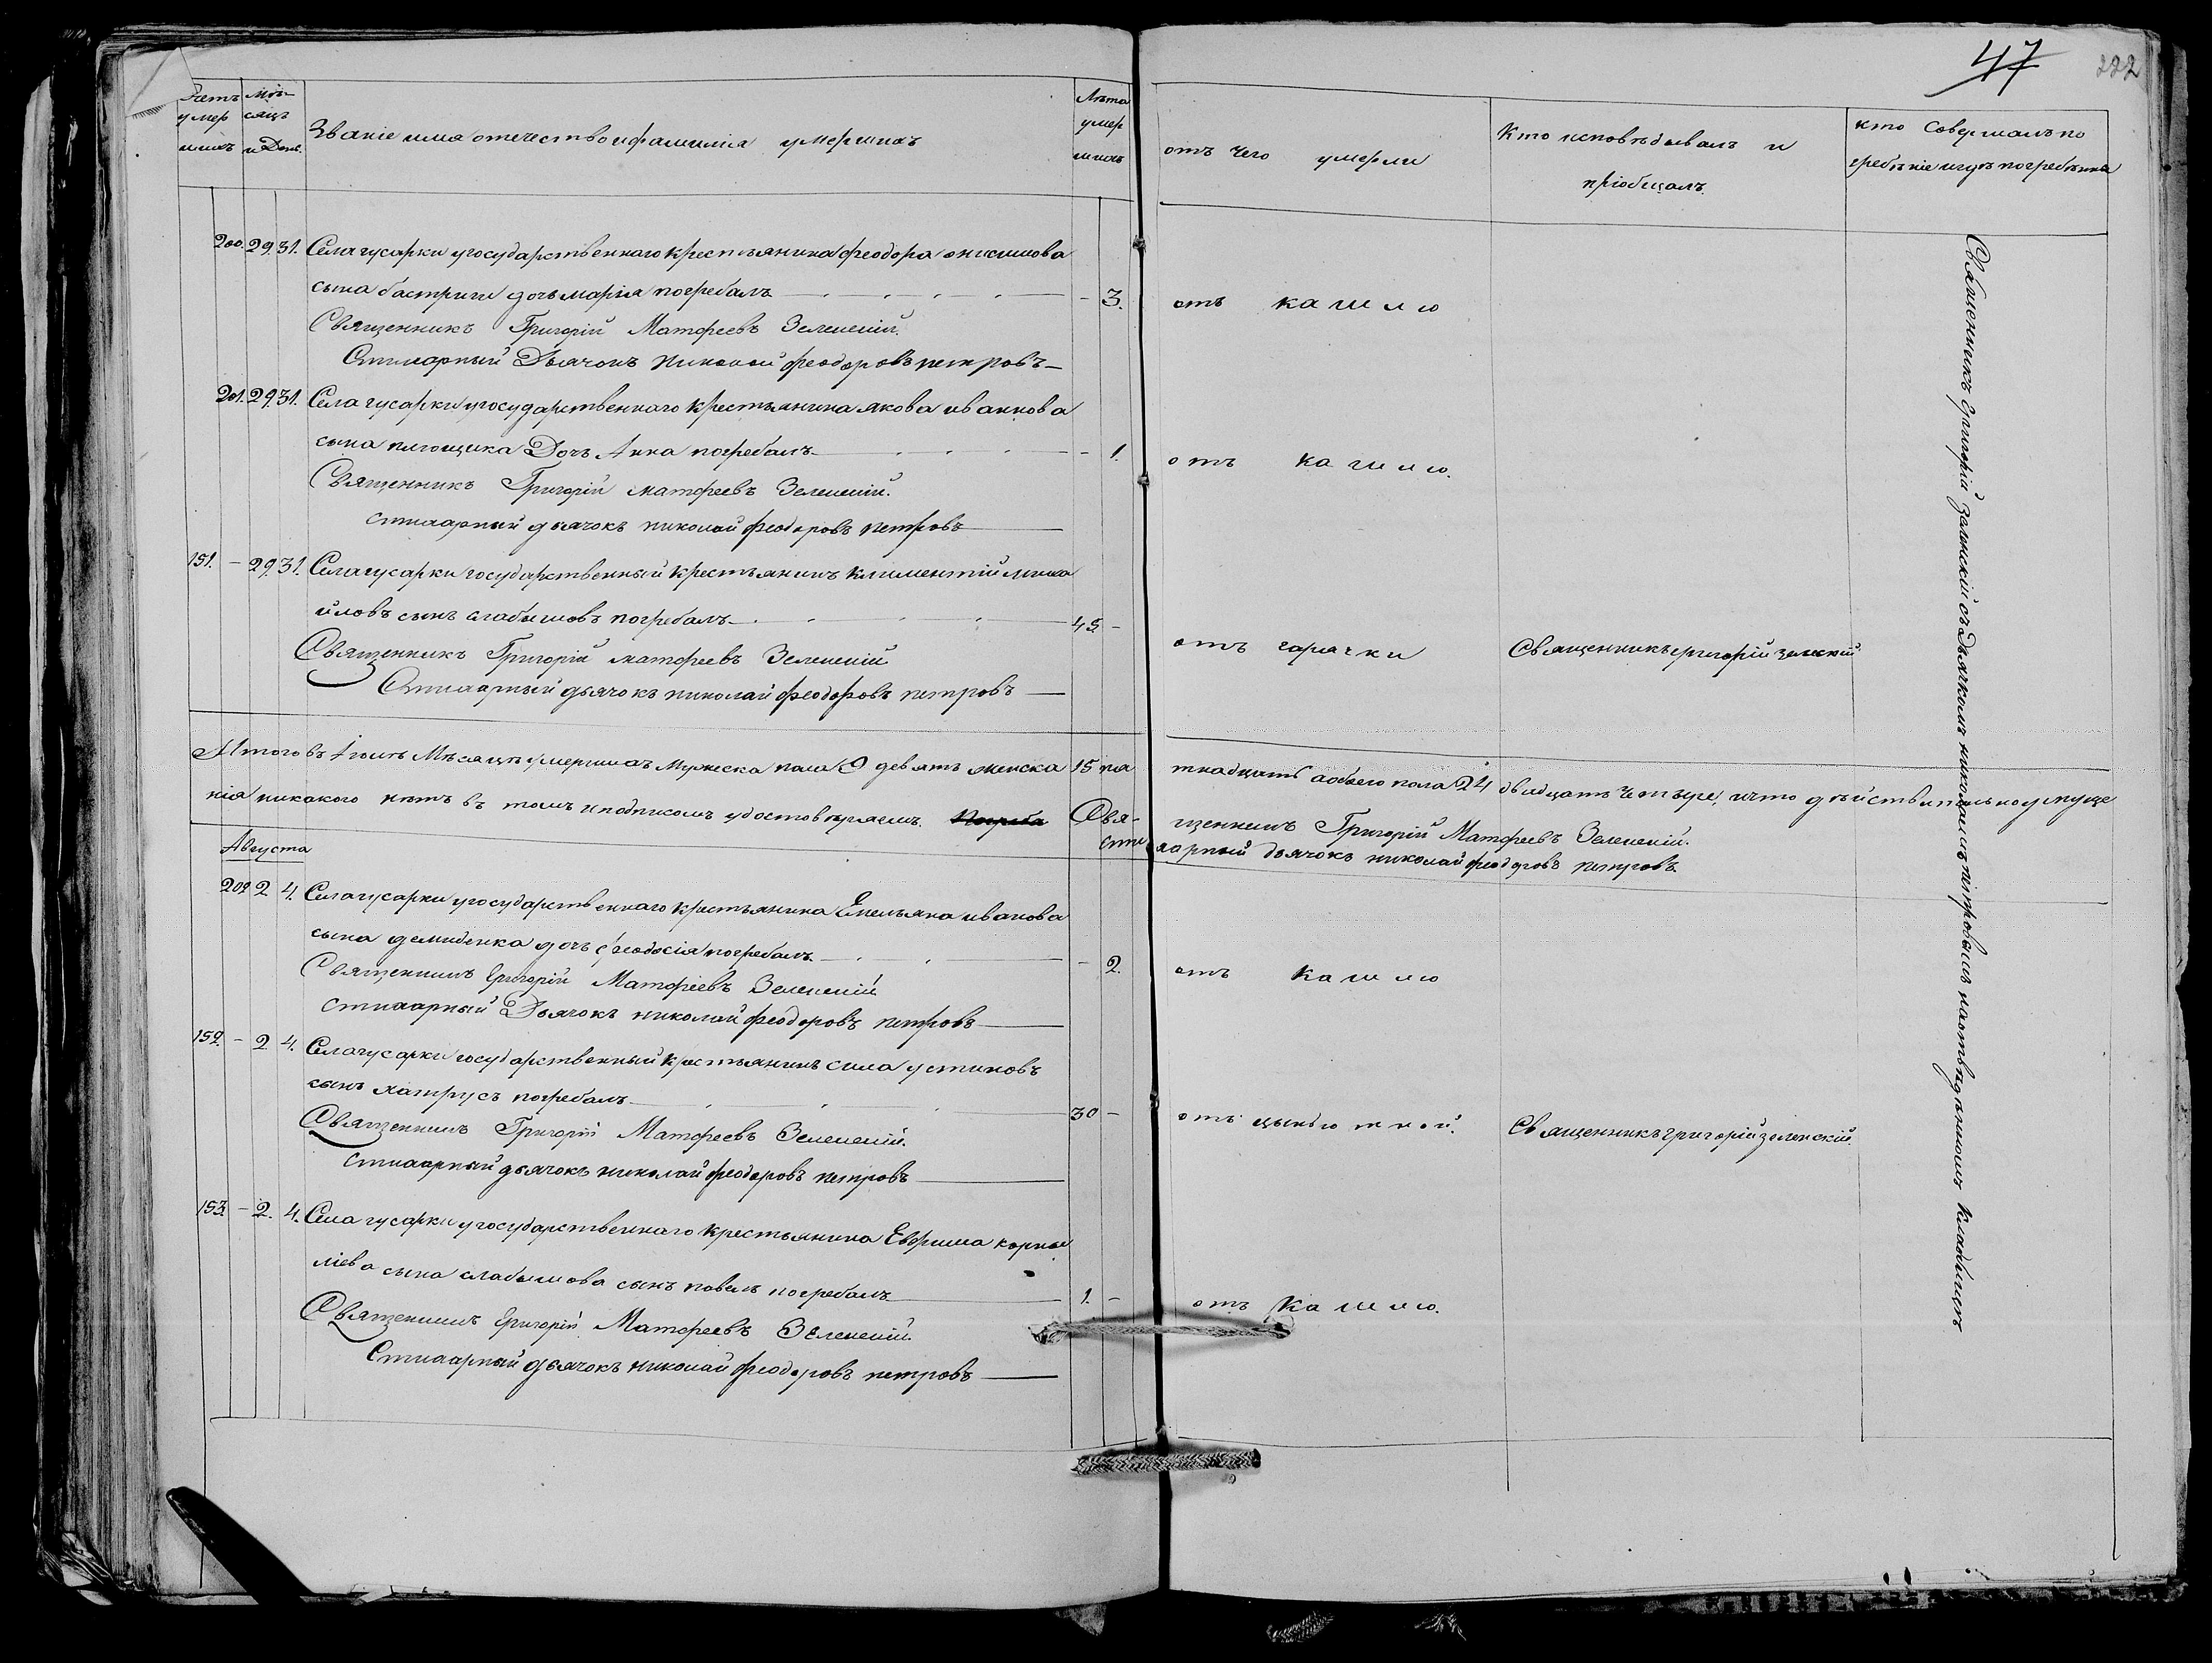 47
222
Счетъ умер шихъ
Мѣ- сяцъ и День.
Званіе имя отечество и фамилія умершихъ
Лѣта умер шихъ
отъ чего умерли
Кто исповѣдывалъ и пріобщалъ.
кто совершалъ по гребѣніе и гдѣ погребены
200. 29. 31. Села гусарки у государственнаго крестьянина феодора онисимова
сына бастриги дочь марія погребалъ — 3. отъ кашлю
Священникъ Григорій Матфеевъ Зеленскій.
Стихарный Дьячокъ Николай феодоровъ петровъ
201. 29. 31. Села гусарки у государственнаго крестьянина якова иваннова
сына плющика Дочь Анна погребалъ — 1. отъ кашлю.
Священникъ Григорій матфеевъ Зеленскій.
стихарный дьячокъ николай феодоровъ петровъ
151. — 29. 31. Села гусарки государственный крестьянинъ климентій миха
йловъ сынъ слабышовъ погребалъ 45 — отъ гарячки Священникъ григорій зеленскій
Священникъ Григорій матфеевъ Зеленскій
Стихарный дьячокъ николай феодоровъ петровъ
Итого въ Іюлѣ Мѣсяцѣ умершихъ Мужеска пола 9 девять женска 15 пя тнадцать а обоего пола 24 двадцать четыре, и что дѣйствительно упуще
нія никакого нѣтъ въ томъ и подписомъ удостовѣряемъ. Свя- щенникъ Григорій Матфеевъ Зеленскій.
Стих арный дьячокъ николай феодоровъ петровъ
Августа
202 2 4. Села гусарки у государственнаго крестьянина Емельяна иванова
сына демиденка дочь феодосія погребалъ — 2. отъ кашлю
Священникъ Григорій Матфеевъ Зеленскій
стихарный Дьячокъ николай феодоровъ петровъ
152. — 2 4. Села гусарки государственный крестьянинъ сила устиновъ
сынъ хатрусъ погребалъ 30 — отъ цынготной. Священникъ григорій зеленскій.
Священникъ Григорій Матфеевъ Зеленскій.
стихарный дьячокъ николай феодоровъ петровъ
153. — 2. 4. Села гусарки у государственнаго крестьянина Евфима корни
ліева сына слабышова сынъ павелъ погребалъ 1. — отъ Кашлю.
Священникъ Григорій Матфеевъ Зеленскій.
Стихарный дьячокъ николай феодоровъ петровъ
Священникъ григорій зеленскій съ Дьячкомъ николаемъ петровымъ на отведенномъ кладбищѣ